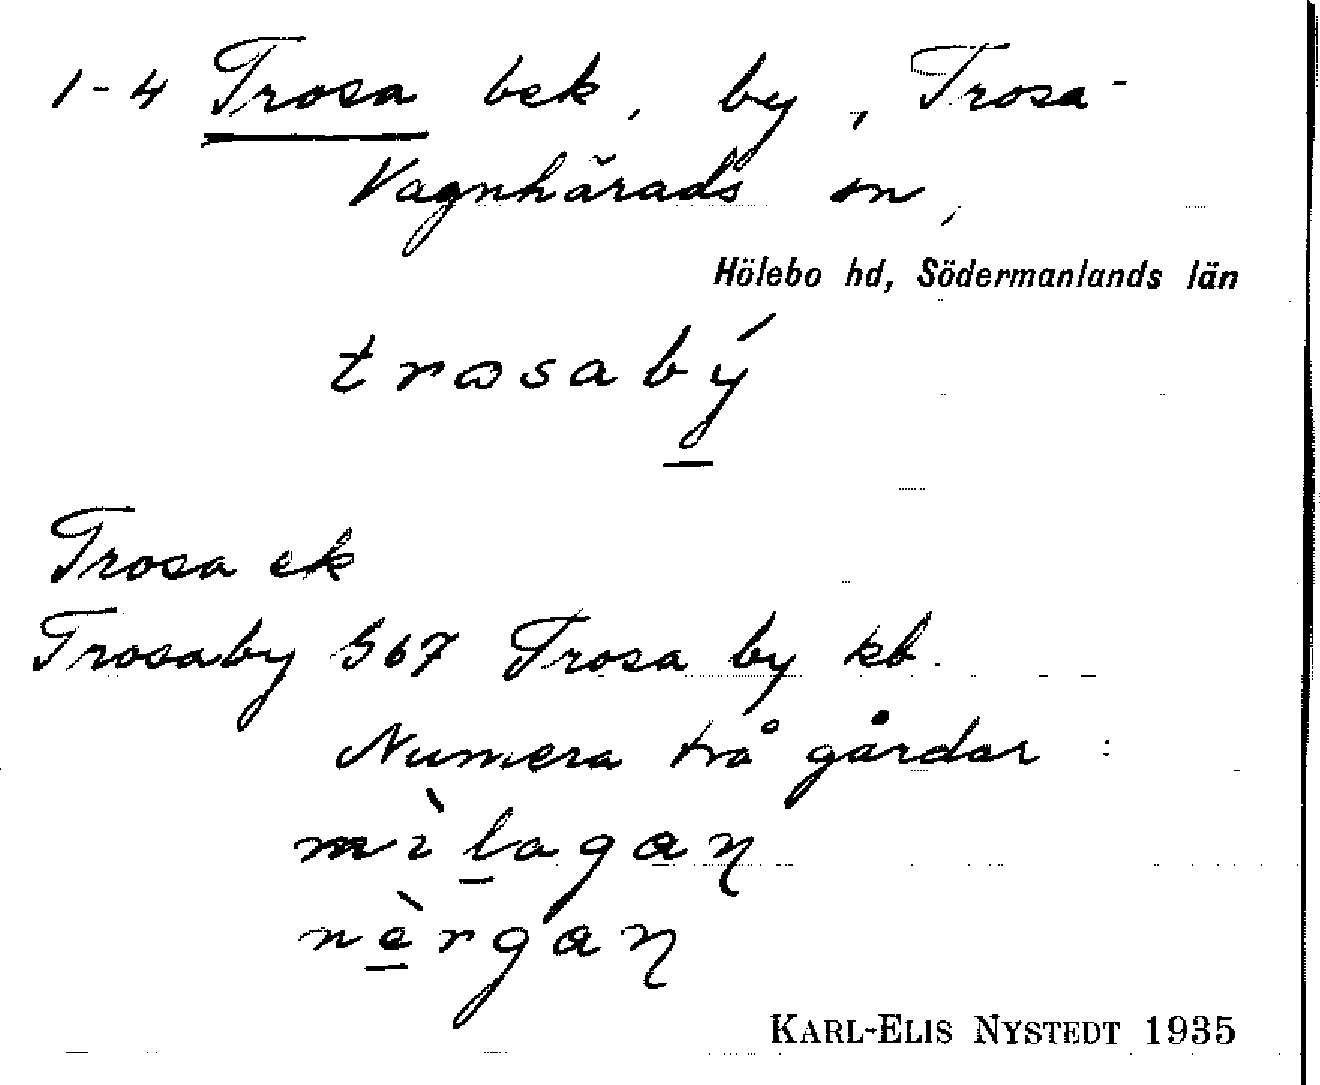 1-4 Trosa bek, by, Trosa-
Vagnhärads sn,
Hölebo hd, Södermanlands län
trosabý
Trosa ek
Trosaby 567 Trosa by kb.
Numera två gårdar:
mìlagaɳ
nèrgaɳ
KARL-ELIS NYSTEDT 1935